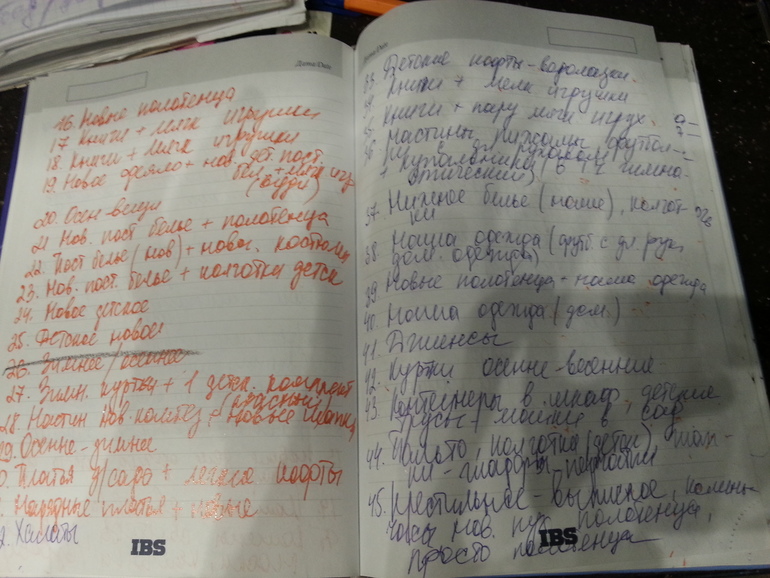 Дата/Date
16. Новые полотенца
17. Книги + мягк игрушки
18. Книги + мягк игрушки
19. Новое одеяло + нов. дет. пост.
бел. + мягк игр
20. Осен вещи
21. Нов. пост белье + полотенца
22. Пост белье (нов) + новы. костюмы
23. Нов. пост. белье + колготки детск
24. Новое детское
25. Детское новое
26. Зимнее/осеннее
27. Зимн. куртки + 1 детск. комплект
(красный)
28. Настин нов. + новые шапки
29. Осенне-зимнее
Платья д/сада + легкие кофты
Нарядные платья + новые
Халаты
IBS
Дата/Date
33. Детские кофты-водолазки.
Книги + мягк игрушки
Книги + пару мягк игруш.
36 Настины пижамы, футбол-
ки с дл рукавом
+ купальники (в т ч гимна-
стический)
37. Нижнее белье (наше), колгот-
ки
38. Наша одежда (футб. с дл. рук,
дом. одежда)
39. Новые полотенца + наша одежда
40. Наша одежда (дом.)
41. Джинсы
42. Куртки осенне-весенние
43. Контейнеры в шкаф, детские
трусы + майки в сад
44. Пальто, колготки (детск), шап-
ки
45. Крестильное-выписное,
нов. полотенца,
просто полотенца
IBS